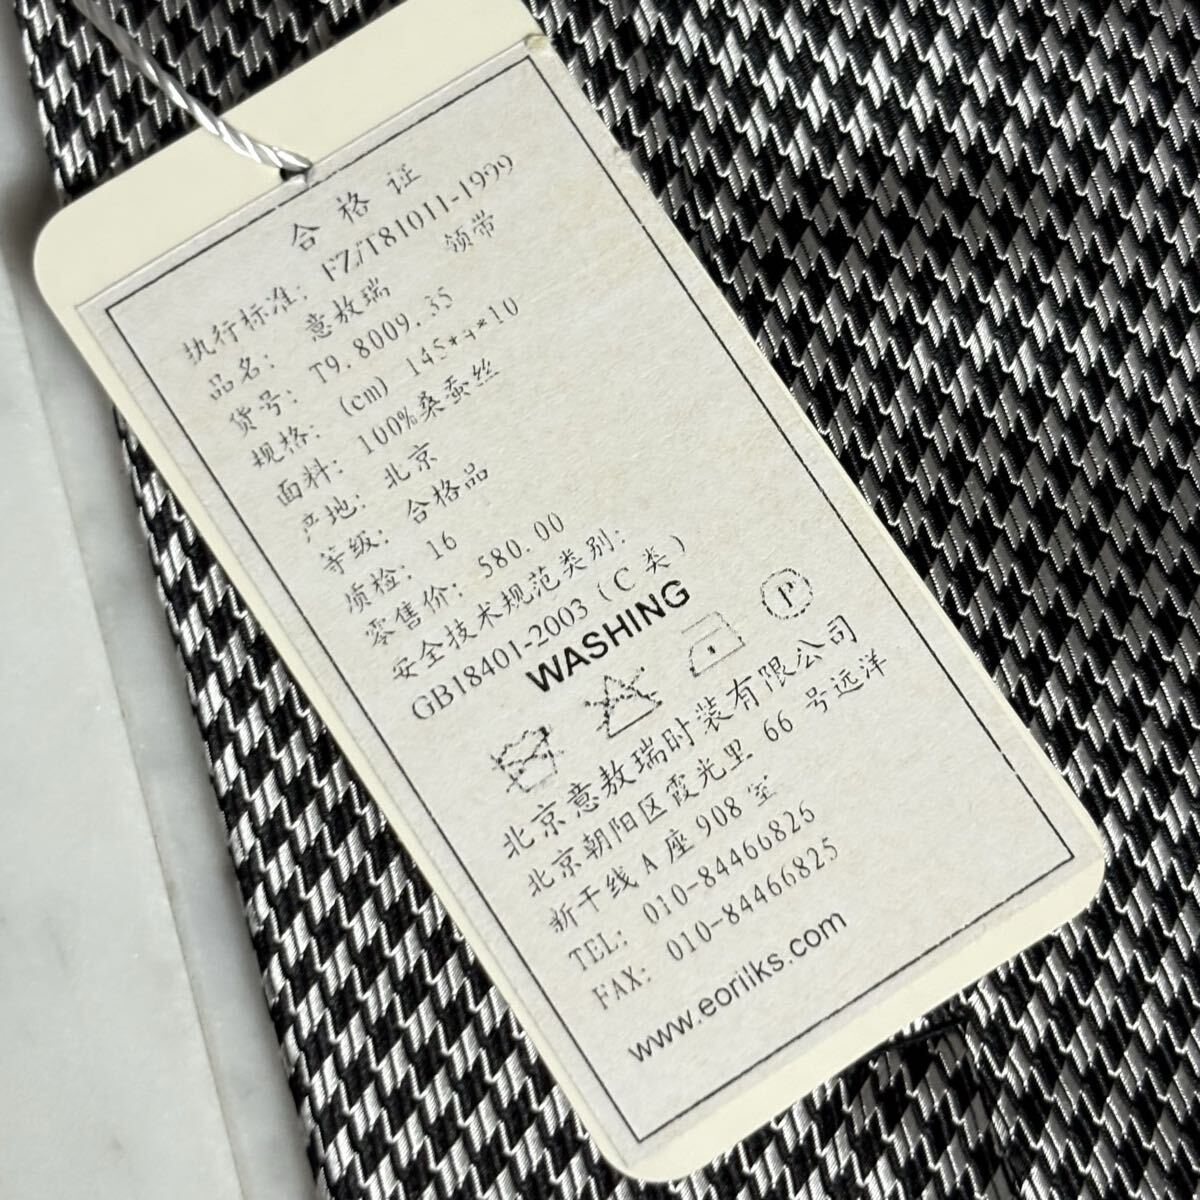 合格证
执行标准: FZ/T81011-1999
品名: 意敖瑞 领带
货号: T9.8009.35
规格: (cm) 145*4*10
面料: 100%桑蚕丝
产地: 北京
等级: 合格品
质检: 16
零售价: 580.00
安全技术规范类别:
GB18401-2003 (C类)
WASHING
P
北京意敖瑞时装有限公司
北京朝阳区霞光里 66 号远洋
新干线 A 座 908 室
TEL: 010-84466826
FAX: 010-84466825
www.eorilks.com